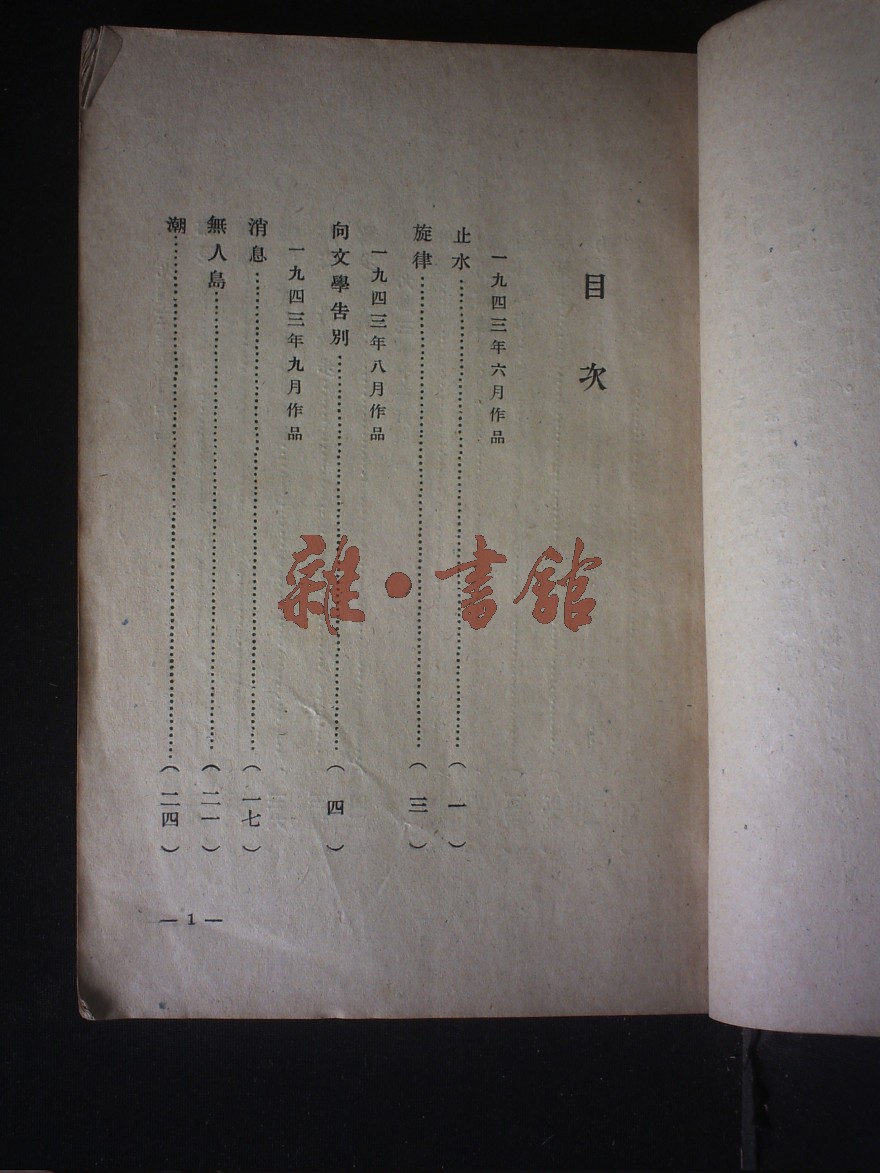 目次
一九四三年六月作品
止水……………………(一)
旋律……………………(三)
一九四三年八月作品
向文學告別……………………(四)
一九四三年九月作品
消息……………………(一七)
無人島……………………(二一)
潮……………………(二四)
— 1 —
雜·書館